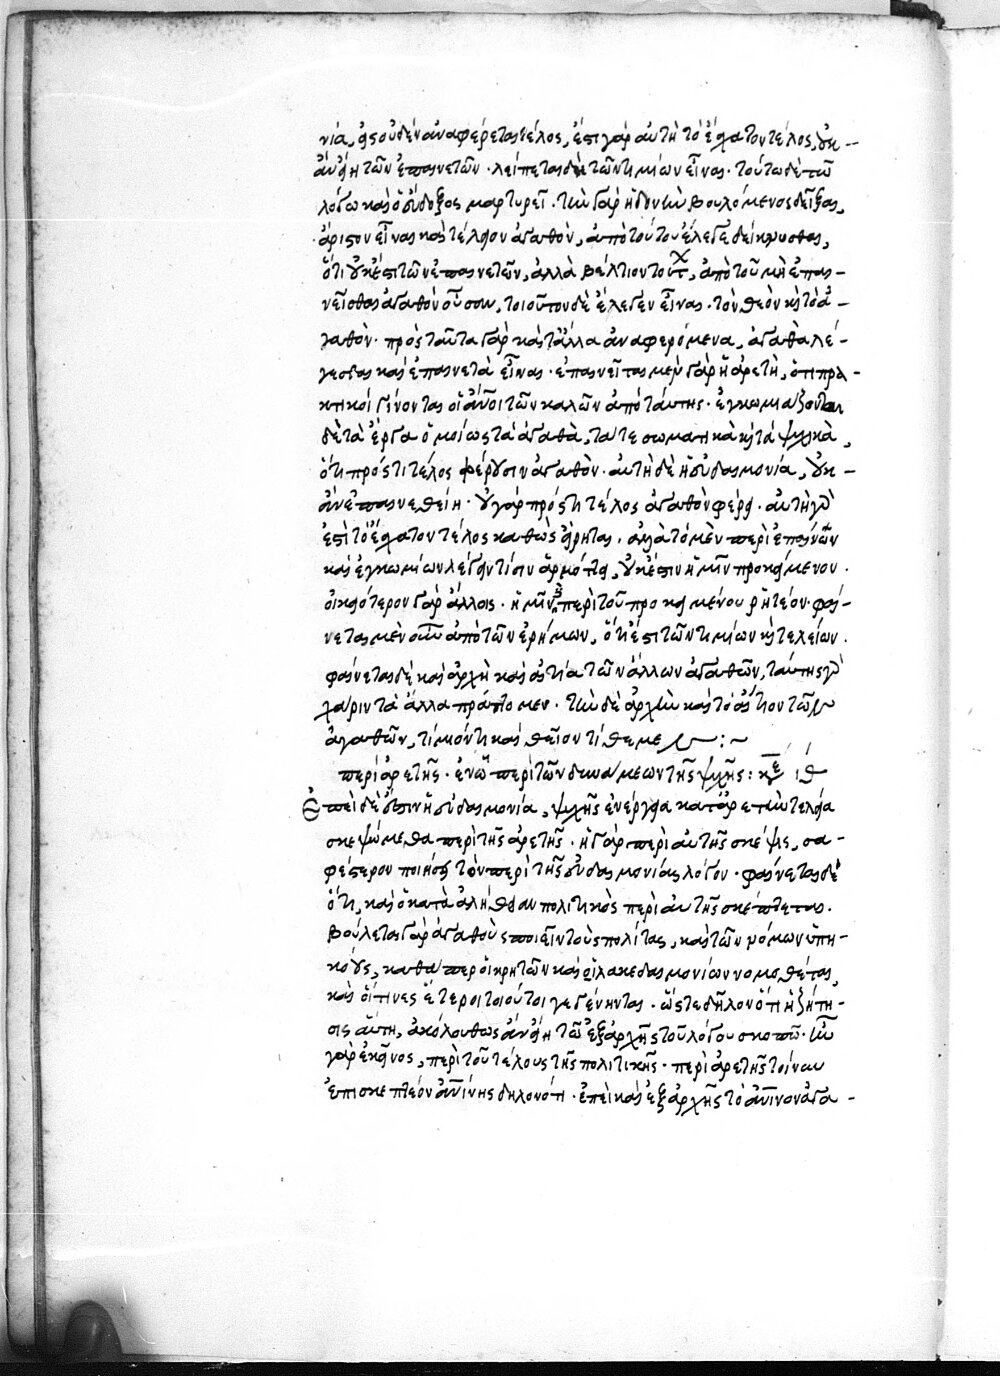 νία, εἰς οὐδὲν ἀναφέρεται τέλος, ἔστι γὰρ αὐτὴ τὸ ἔσχατον τέλος, οὐκ -
ἂν εἴη τῶν ἐπαινετῶν· λείπεται δὴ τῶν τιμίων εἶναι· τούτω δὲ τῶ
λόγω καὶ ὁ εὔδοξος μαρτυρεῖ· τὴν γὰρ ἡδονὴν βουλόμενος δεῖξαι,
ἄριστον εἶναι καὶ τέλειον ἀγαθὸν, ἀπὸ τούτου ἔλεγε δείκνυσθαι,
ὅτι οὐκ ἔστι τῶν ἐπαινετῶν, ἀλλὰ βέλτιον τούτ, ἀπὸ τοῦ μὴ ἐπαι-
νεῖσθαι ἀγαθὸν οὖσαν, τοιοῦτον δὲ ἔλεγεν εἶναι· τὸν θεὸν καὶ τὸ ἀ-
γαθὸν· πρὸς ταῦτα γὰρ καὶ τἄλλα ἀναφερόμενα, ἀγαθὰ λέ-
γεσθαι καὶ ἐπαινετὰ εἶναι· ἐπαινεῖται μὲν γὰρ ἡ ἀρετὴ, ὅτι πρα-
κτικοὶ γίνονται οἱ ἄνοι τῶν καλῶν ἀπὸ ταύτης· ἐγκωμιάζονται
δὲ τὰ ἔργα ὁμοίως τὰ ἀγαθὰ, τά τε σωματικὰ καὶ τὰ ψυχικὰ,
ὅτι πρός τι τέλος φέρουσιν ἀγαθὸν· αὐτὴ δὲ ἡ εὐδαιμονία, οὐκ -
ἂν ἐπαινεθείη· οὐ γὰρ πρός τι τέλος ἀγαθὸν φέρει· αὐτὴ γὰρ
ἐστὶ τὸ ἔσχατον τέλος καθὼς εἴρηται, ἀλλὰ τὸ μὲν περὶ ἐπαίνων
καὶ ἐγκωμίων λέγειν τίσιν ἁρμόττει, οὐκ ἔστιν ἡμῖν προκείμενον.
οἰκειότερον γὰρ ἄλλοις· ἡμῖν δὲ περὶ τοῦ προκειμένου ῥητέον· φαί-
νεται μὲν οὖν ἀπὸ τῶν εἰρημένων, ὅτι ἐστὶ τῶν τιμίων καὶ τελείων.
φαίνεται δὲ καὶ ἀρχὴ καὶ αἰτία τῶν ἄλλων ἀγαθῶν, ταύτης γὰρ
χάριν τὰ ἄλλα πράττομεν· τὴν δὲ ἀρχὴν καὶ τὸ αἴτιον τῶν
ἀγαθῶν, τίμιόν τι καὶ θεῖον τίθεμεν :~
περὶ ἀρετῆς· ἐν ὧ περὶ τῶν δυνάμεων τῆς ψυχῆς: κε ιθ
Ἐπεὶ δέ ἐστιν ἡ εὐδαιμονία, ψυχῆς ἐνέργεια κατ' ἀρετὴν τελεία
σκεψώμεθα περὶ τῆς ἀρετῆς· ἡ γὰρ περὶ αὐτῆς σκέψις, σα-
φέστερον ποιήσει τὸν περὶ τῆς εὐδαιμονίας λόγον· φαίνεται δὲ
ὅτι, καὶ ὁ κατὰ ἀλήθειαν πολιτικὸς περὶ αὐτῆς σκέπτεται.
βούλεται γὰρ ἀγαθοὺς ποιεῖν τοὺς πολίτας, καὶ τῶν νόμων ὑπη-
κόους, καθάπερ οἱ κρητῶν καὶ οἱ λακεδαιμονίων νομοθέται,
καὶ οἵτινες ἕτεροι τοιοῦτοι γεγένηνται· ὥστε δῆλον ὅτι ἡ ζήτη-
σις αὕτη, ἀκόλουθος ἂν εἴη τῶ ἐξ ἀρχῆς τοῦ λόγου σκοπῶ· ἦν
γὰρ ἐκεῖνος, περὶ τοῦ τέλους τῆς πολιτικῆς· περὶ ἀρετῆς τοίνυν
ἐπισκεπτέον ἀνίνης δηλονότι· ἐπεὶ καὶ ἐξ ἀρχῆς τὸ ἀνινον ἀγα -